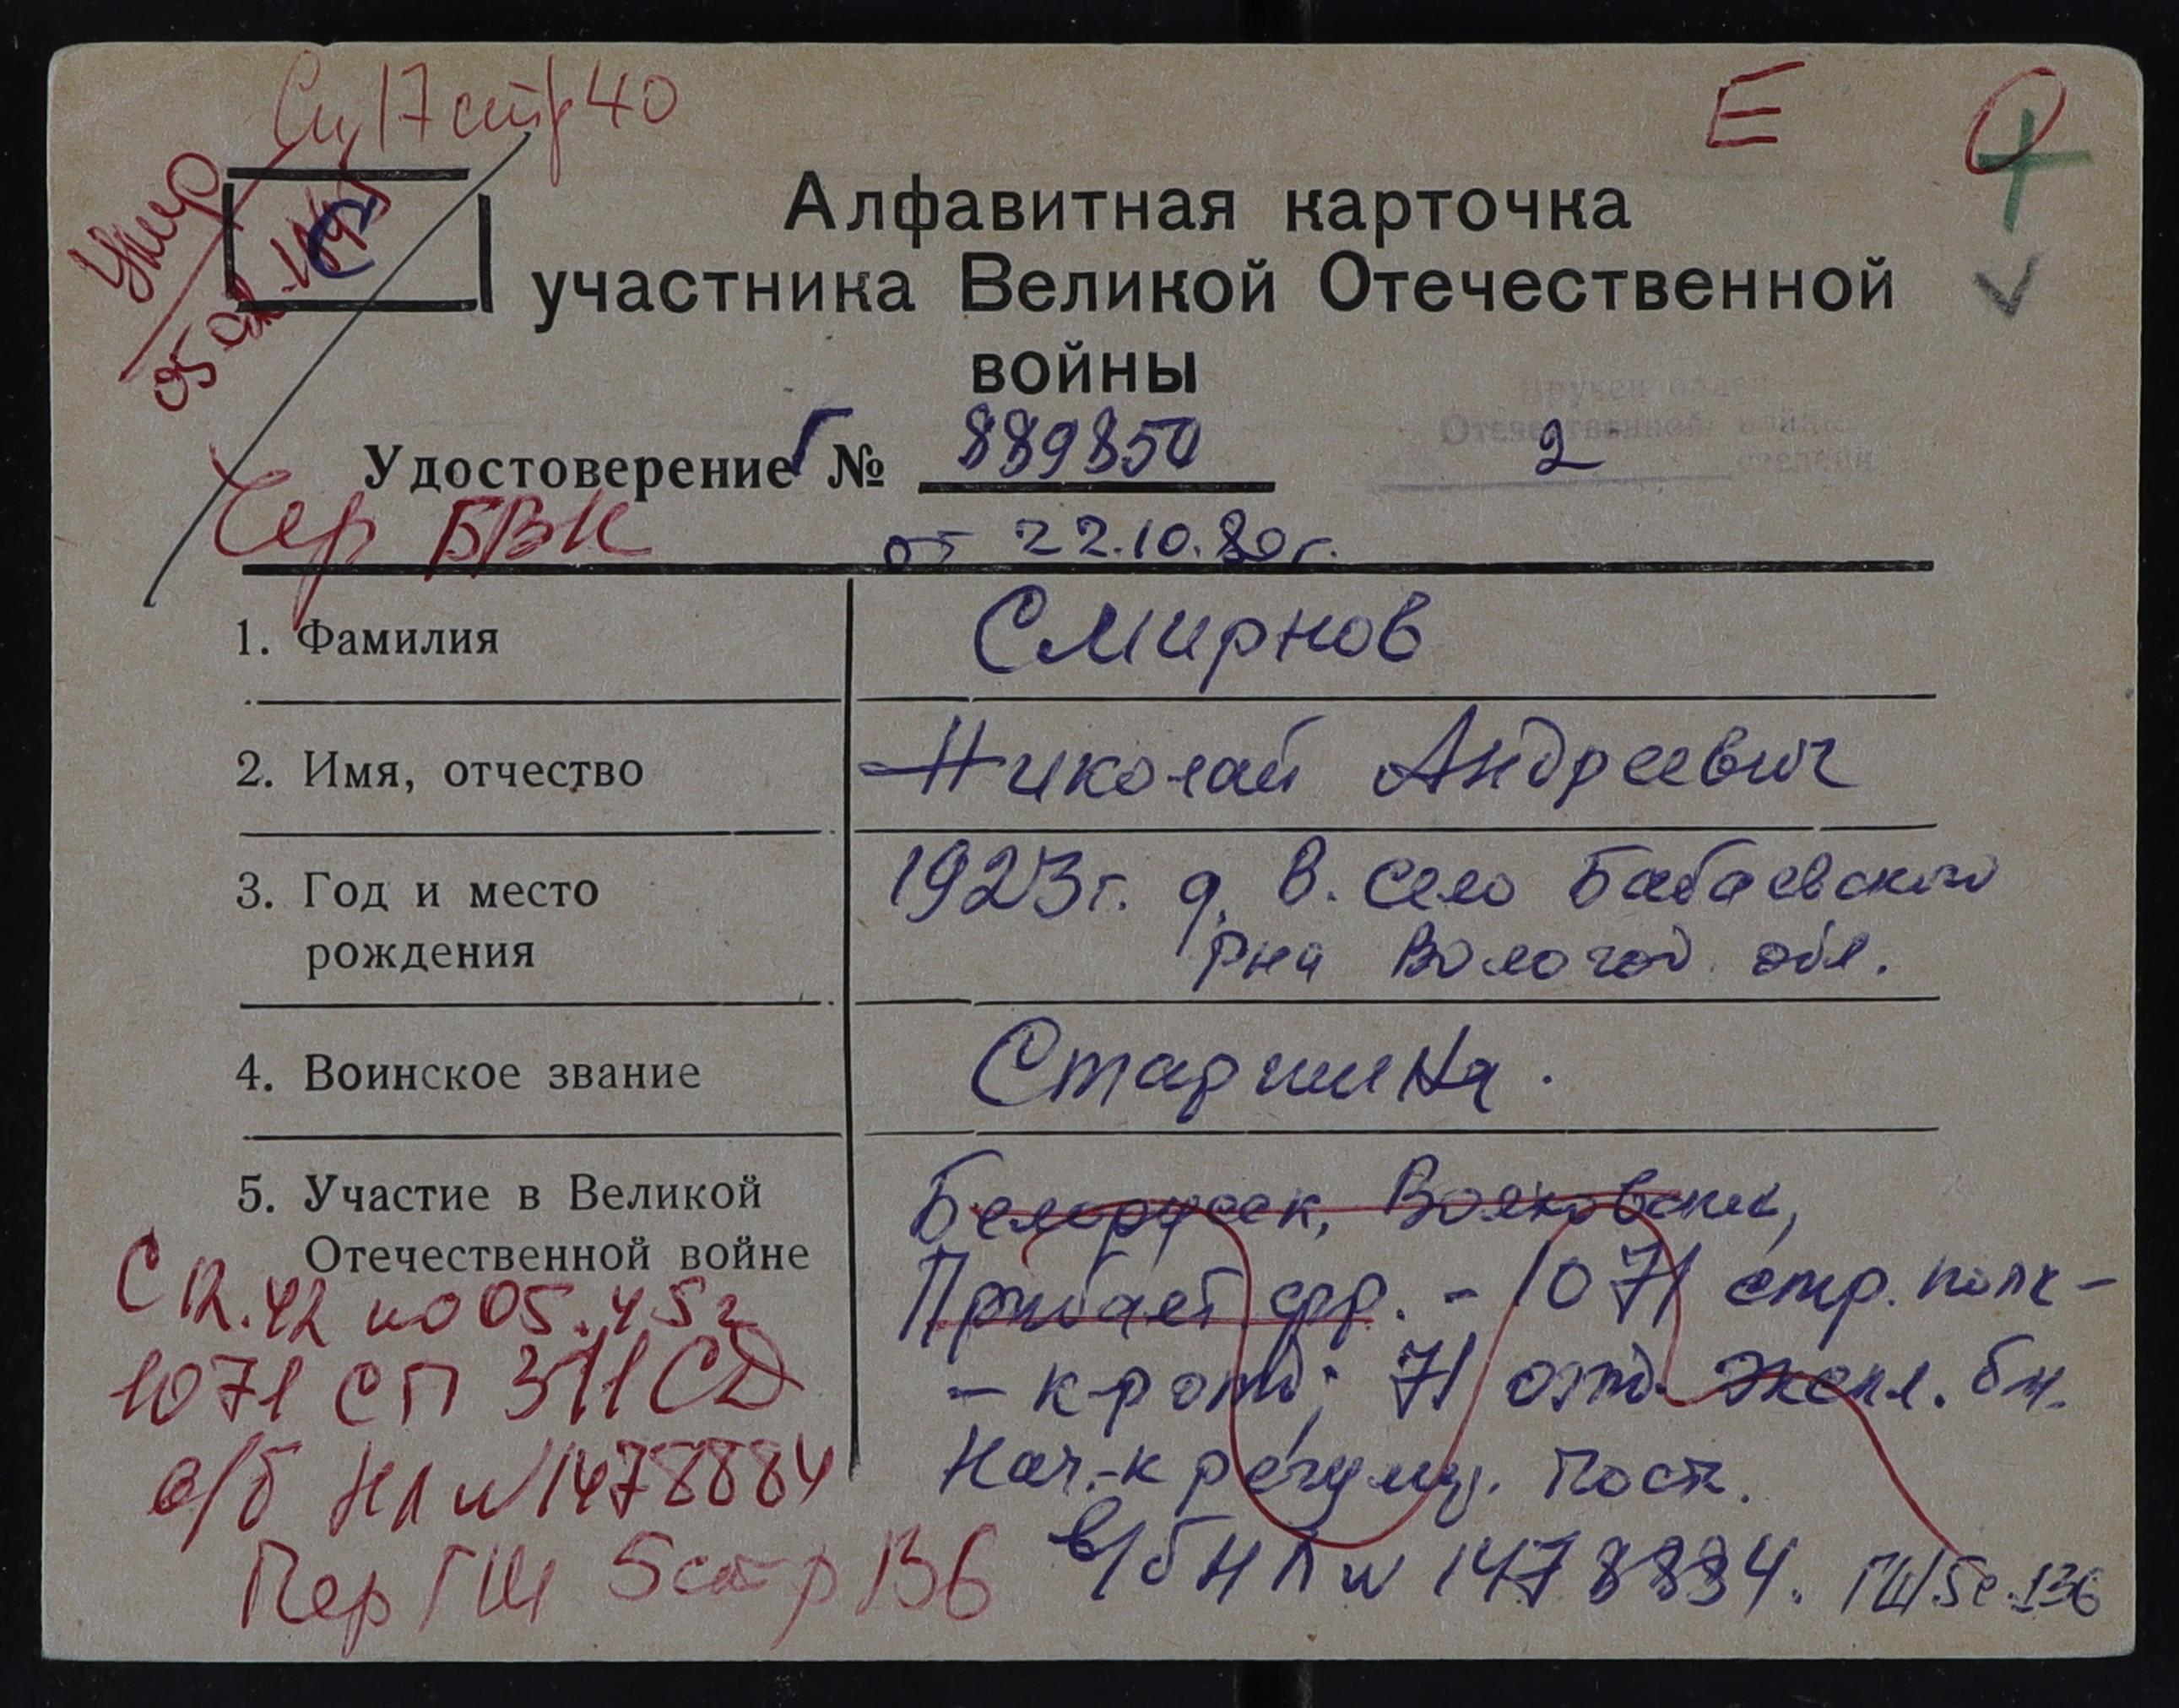 Сп 17 стр 40
Е
О
Умер
05
С
Алфавитная карточка
участника Великой Отечественной
войны
Удостоверение Г № 889850
Вручен
Отечественной войны
2 степени
Чер БВК
от 22.10.80г.
1. Фамилия
Смирнов
2. Имя, отчество
Николай Андреевич
3. Год и место
рождения
1923г. д. В. Село Бабаевского
рна Вологод. обл.
4. Воинское звание
Старшина.
5. Участие в Великой
Отечественной войне
Белорусск, Волховский,
Прибалт фр. - 1071 стр. полк -
- к-р отд; 71 отд. экспл. бн.
Нач-к регулир. Пост.
в/б НЛ № 1478884. ГШ 5 с. 136
С 12.42 по 05.45г
1071 СП 311 СД
в/б НЛ № 1478884
Пер ГШ 5 стр 136